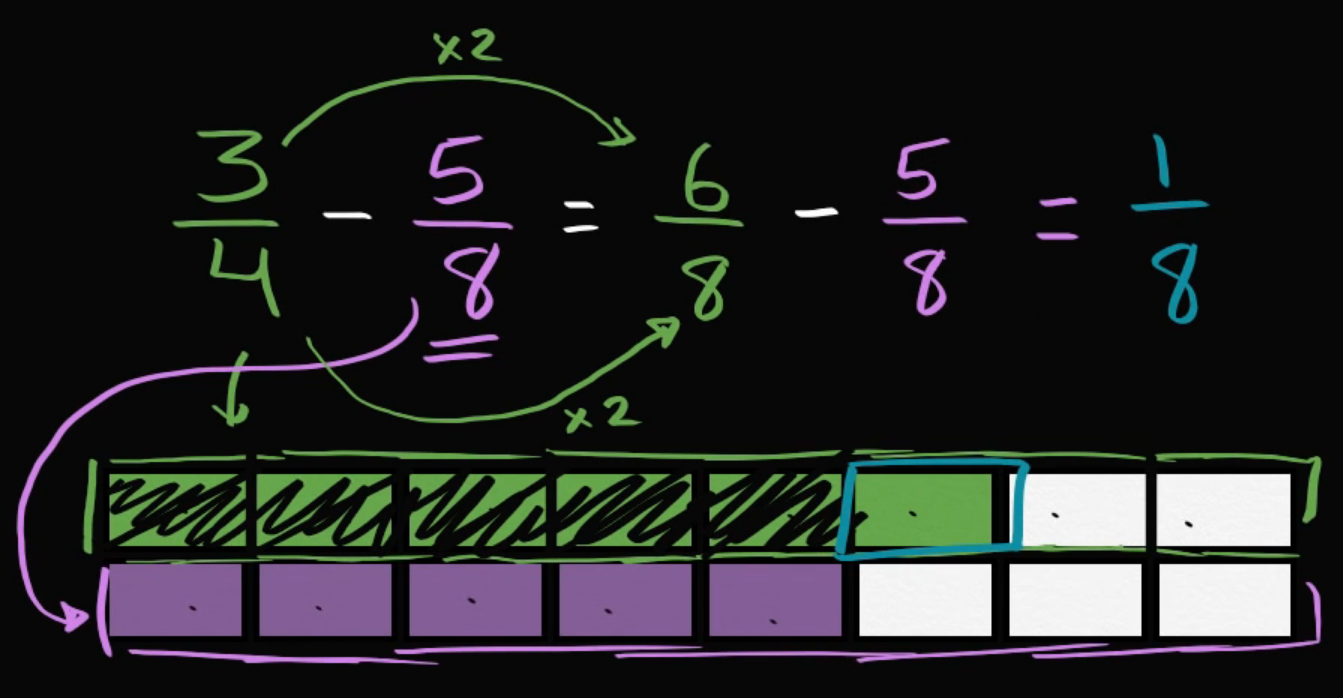 ×2
3/4 - 5/8 = 6/8 - 5/8 = 1/8
×2